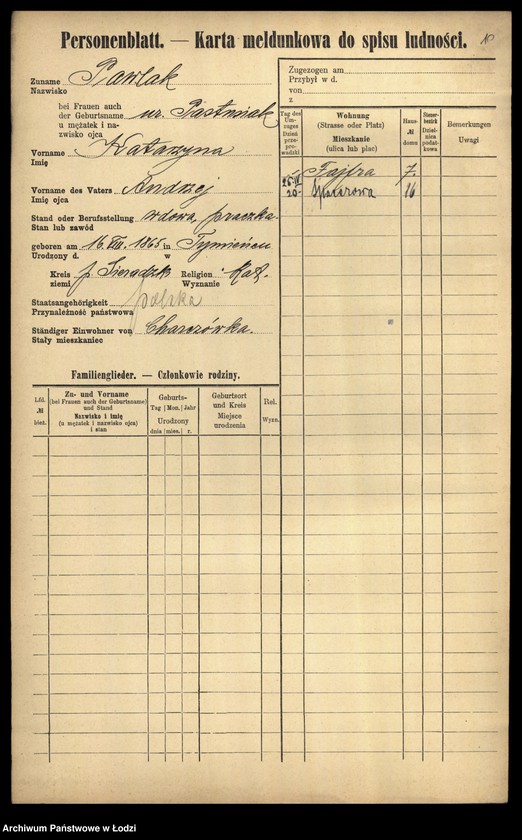 Personenblatt. — Karta meldunkowa do spisu ludności.
Zuname Pawlak
Nazwisko
bei Frauen auch
der Geburtsname ur. Pastwiak
u mężatek i na-
zwisko ojca
Vorname Katarzyna
Imię
Vorname des Vaters Andrzej
Imię ojca
Stand oder Berufsstellung wdowa, praczka
Stan lub zawód
geboren am 16.VIII.1865 in Tymieńcu
Urodzony d. w
Kreis p. Sieradzk. Religion Kat.
ziemi Wyznanie
Staatsangehörigkeit polska
Przynależność państwowa
Ständiger Einwohner von Charzówka.
Stały mieszkaniec
Zugezogen am
Przybył w d.
von
z
Tag des Um-zuges Dzień prze-prowadzki
Wohnung
(Strasse oder Platz)
Mieszkanie
(ulica lub plac)
Haus-
№
domu
Steuer-bezirk Dzielnica podatkowa
Bemerkungen
Uwagi
Fajfra 7.
20- Spacerowa 16
Familienglieder. — Członkowie rodziny.
Lfd.
№
bież.
Zu- und Vorname
(bei Frauen auch der Geburtsname)
und Stand
Nazwisko i imię
(u mężatek i nazwisko ojca)
i stan
Geburts-
Tag | Mon. | Jahr
Urodzony
dnia | mies. | r.
Geburtsort
und Kreis
Miejsce
urodzenia
Rel.
Wyzn.
Archiwum Państwowe w Łodzi